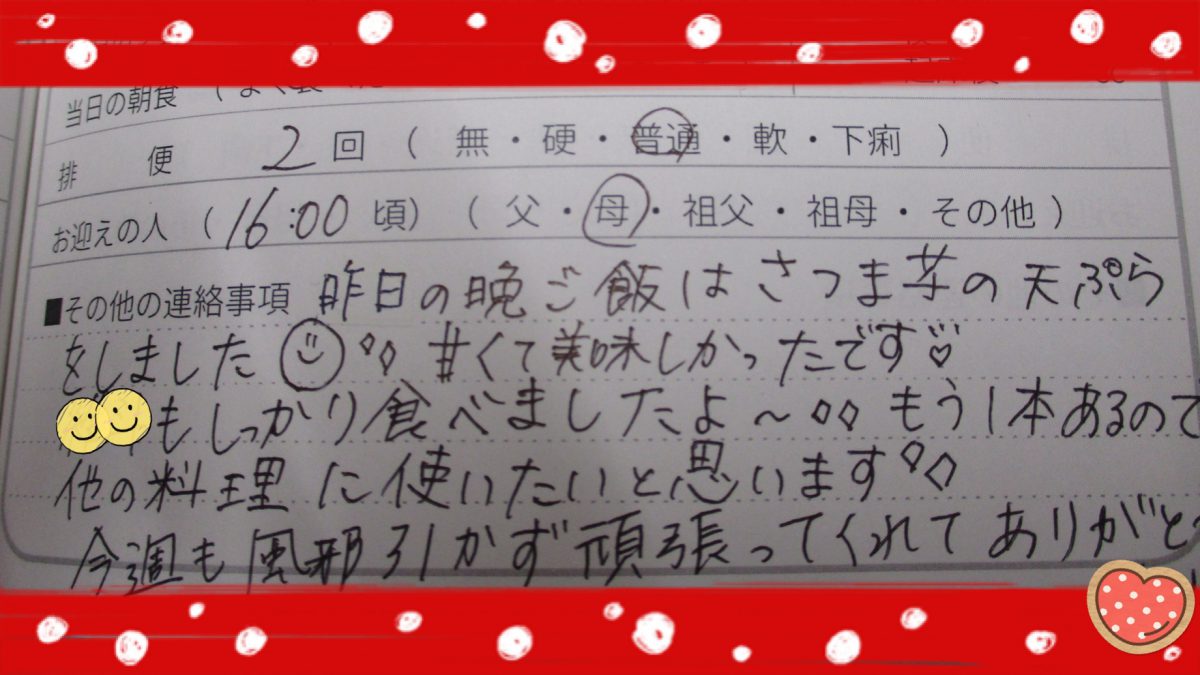 当日の朝食 （
排便 2回 （ 無・硬・普通・軟・下痢 ）
お迎えの人 （ 16:00 頃） （ 父・母・祖父・祖母・その他 ）
■その他の連絡事項 昨日の晩ご飯はさつま芋の天ぷら
をしました 甘くて美味しかったです♡
もしっかり食べましたよ～ もう1本あるので
他の料理に使いたいと思います
今週も風邪引かず頑張ってくれてありがと